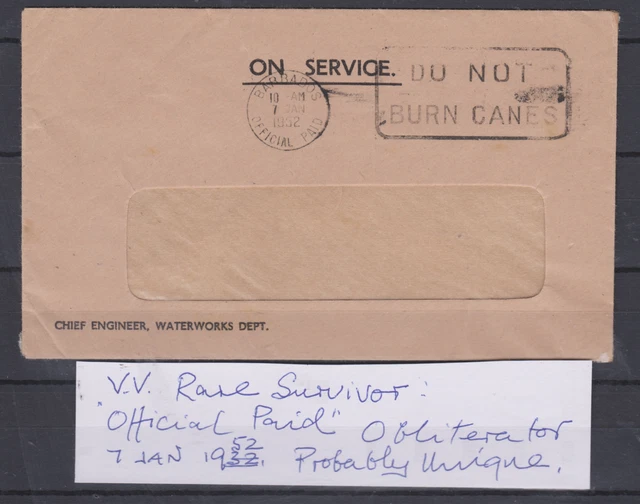 ON SERVICE.
BARBADOS
10 AM
7 JAN
1952
OFFICIAL PAID
DO NOT
BURN CANES
CHIEF ENGINEER, WATERWORKS DEPT.
V.V. Rare Survivor:
"Official Paid" Obliterator
52
7 JAN 1932. Probably Unique.